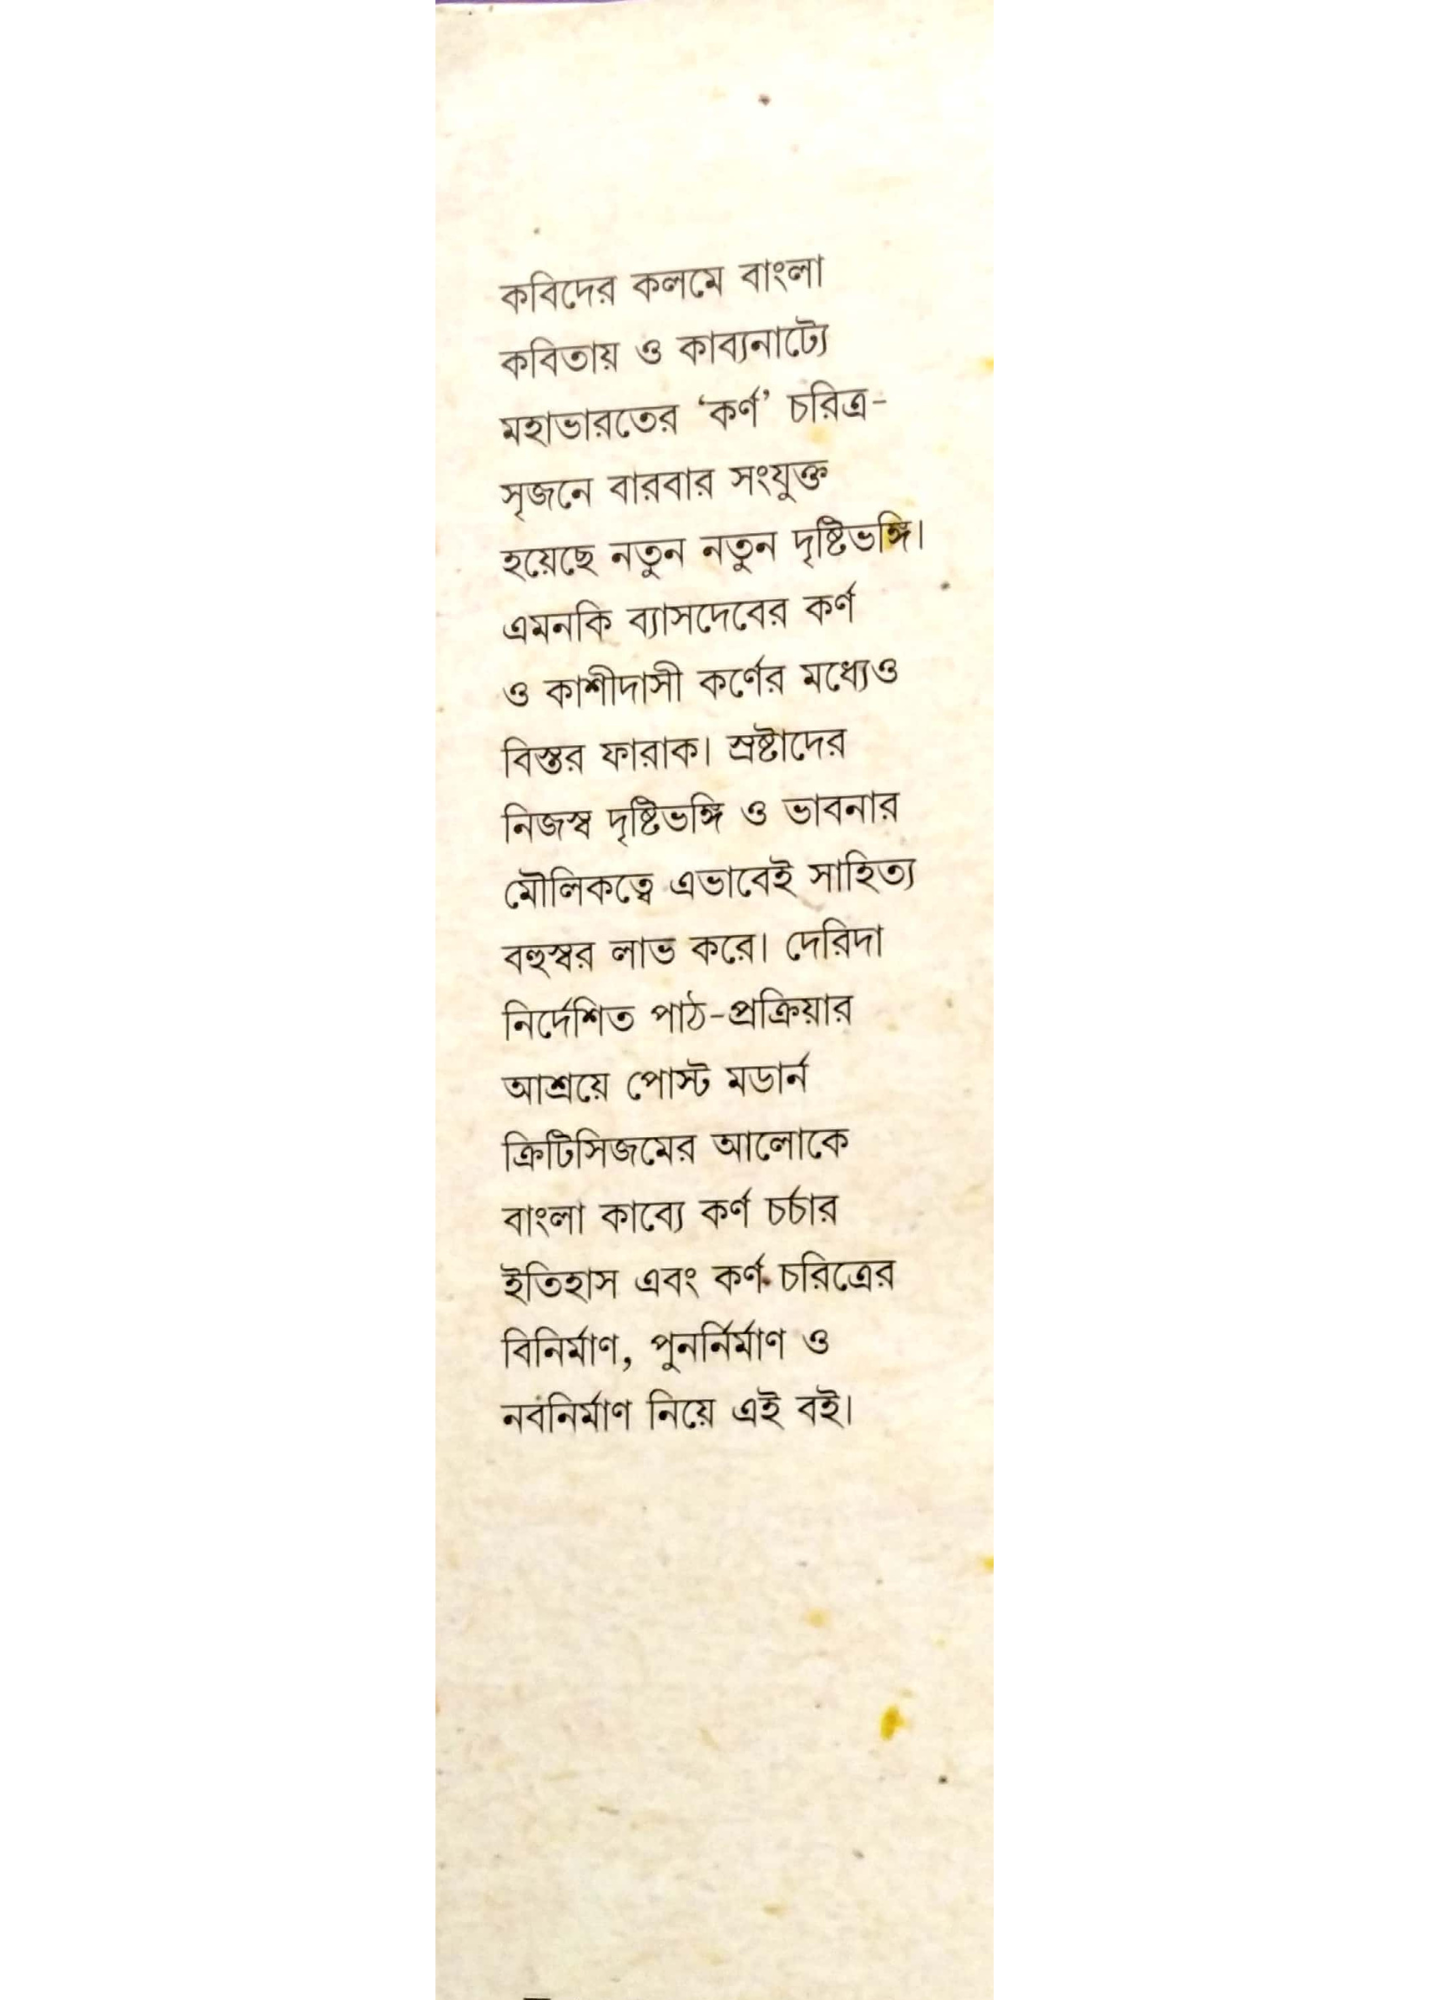 কবিদের কলমে বাংলা
কবিতায় ও কাব্যনাট্যে
মহাভারতের ‘কর্ণ’ চরিত্র-
সৃজনে বারবার সংযুক্ত
হয়েছে নতুন নতুন দৃষ্টিভঙ্গি।
এমনকি ব্যাসদেবের কর্ণ
ও কাশীদাসী কর্ণের মধ্যেও
বিস্তর ফারাক। স্রষ্টাদের
নিজস্ব দৃষ্টিভঙ্গি ও ভাবনার
মৌলিকত্বে এভাবেই সাহিত্য
বহুস্বর লাভ করে। দেরিদা
নির্দেশিত পাঠ-প্রক্রিয়ার
আশ্রয়ে পোস্ট মডার্ন
ক্রিটিসিজমের আলোকে
বাংলা কাব্যে কর্ণ চর্চার
ইতিহাস এবং কর্ণ চরিত্রের
বিনির্মাণ, পুনর্নির্মাণ ও
নবনির্মাণ নিয়ে এই বই।